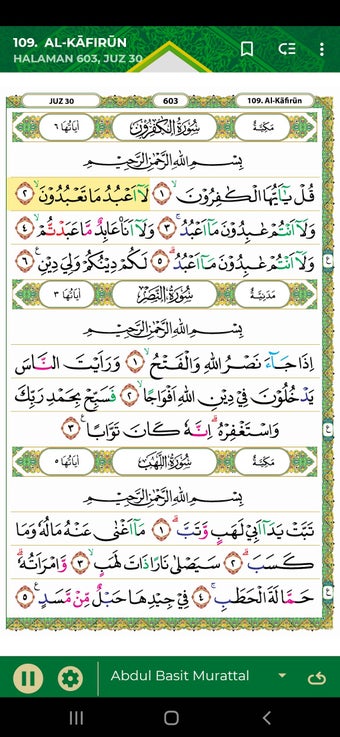 109. AL-KĀFIRŪN
HALAMAN 603, JUZ 30
JUZ 30 603 109. Al-Kāfirūn
مَكِّيَّةٌ سُوْرَةُ الْكٰفِرُوْنَ اٰيَاتُهَا ٦
بِسْمِ اللّٰهِ الرَّحْمٰنِ الرَّحِيْمِ
قُلْ يٰٓاَيُّهَا الْكٰفِرُوْنَۙ ١ لَآ اَعْبُدُ مَا تَعْبُدُوْنَۙ ٢
وَلَآ اَنْتُمْ عٰبِدُوْنَ مَآ اَعْبُدُۚ ٣ وَلَآ اَنَا۠ عَابِدٌ مَّا عَبَدْتُّمْۙ ٤
وَلَآ اَنْتُمْ عٰبِدُوْنَ مَآ اَعْبُدُۗ ٥ لَكُمْ دِيْنُكُمْ وَلِيَ دِيْنِ ࣖ ٦
مَدَنِيَّةٌ سُوْرَةُ النَّصْرِ اٰيَاتُهَا ٣
بِسْمِ اللّٰهِ الرَّحْمٰنِ الرَّحِيْمِ
اِذَا جَاۤءَ نَصْرُ اللّٰهِ وَالْفَتْحُۙ ١ وَرَاَيْتَ النَّاسَ
يَدْخُلُوْنَ فِيْ دِيْنِ اللّٰهِ اَفْوَاجًاۙ ٢ فَسَبِّحْ بِحَمْدِ رَبِّكَ
وَاسْتَغْفِرْهُۗ اِنَّهٗ كَانَ تَوَّابًا ࣖ ٣
مَكِّيَّةٌ سُوْرَةُ اللَّهَبِ اٰيَاتُهَا ٥
بِسْمِ اللّٰهِ الرَّحْمٰنِ الرَّحِيْمِ
تَبَّتْ يَدَآ اَبِيْ لَهَبٍ وَّتَبَّۗ ١ مَآ اَغْنٰى عَنْهُ مَالُهٗ وَمَا
كَسَبَۗ ٢ سَيَصْلٰى نَارًا ذَاتَ لَهَبٍۙ ٣ وَّامْرَاَتُهٗۗ
حَمَّالَةَ الْحَطَبِۚ ٤ فِيْ جِيْدِهَا حَبْلٌ مِّنْ مَّسَدٍ ࣖ ٥
Abdul Basit Murattal